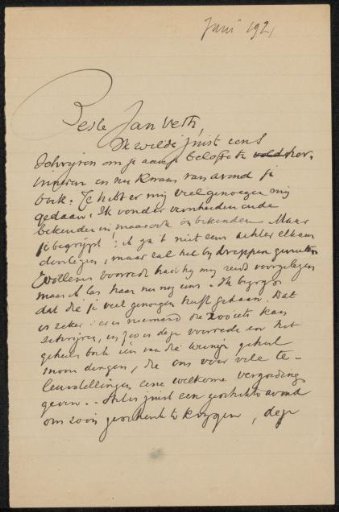 Juni 1921
Beste Jan Veth,
Ik wilde juist eens
schrijven om je aan je belofte te
inneren en nu kwam van avond je
boek. Je hebt er mij veel genoegen mij
gedaan. Ik vond er verscheiden oude
bekenden en meerdere onbekenden. Maar
je begrijpt: ik ga 't niet eens achter elkaar
doorlezen, maar zal het bij droppen genieten
voorrede had hij mij reeds voorgelezen
maar ik las haar nu nog eens. Ik begrijp
dat die je veel genoegen heeft gedaan. Dat
is zeker: niemand die zooiets kan
schrijven, en zoo is deze voorrede en het
geheele boek een van die weinige geheel
mooie dingen, die ons voor vele te-
leurstellingen eene welkome vergoeding
geven. juist een geschikte avond
om zooiets te krijgen, deze